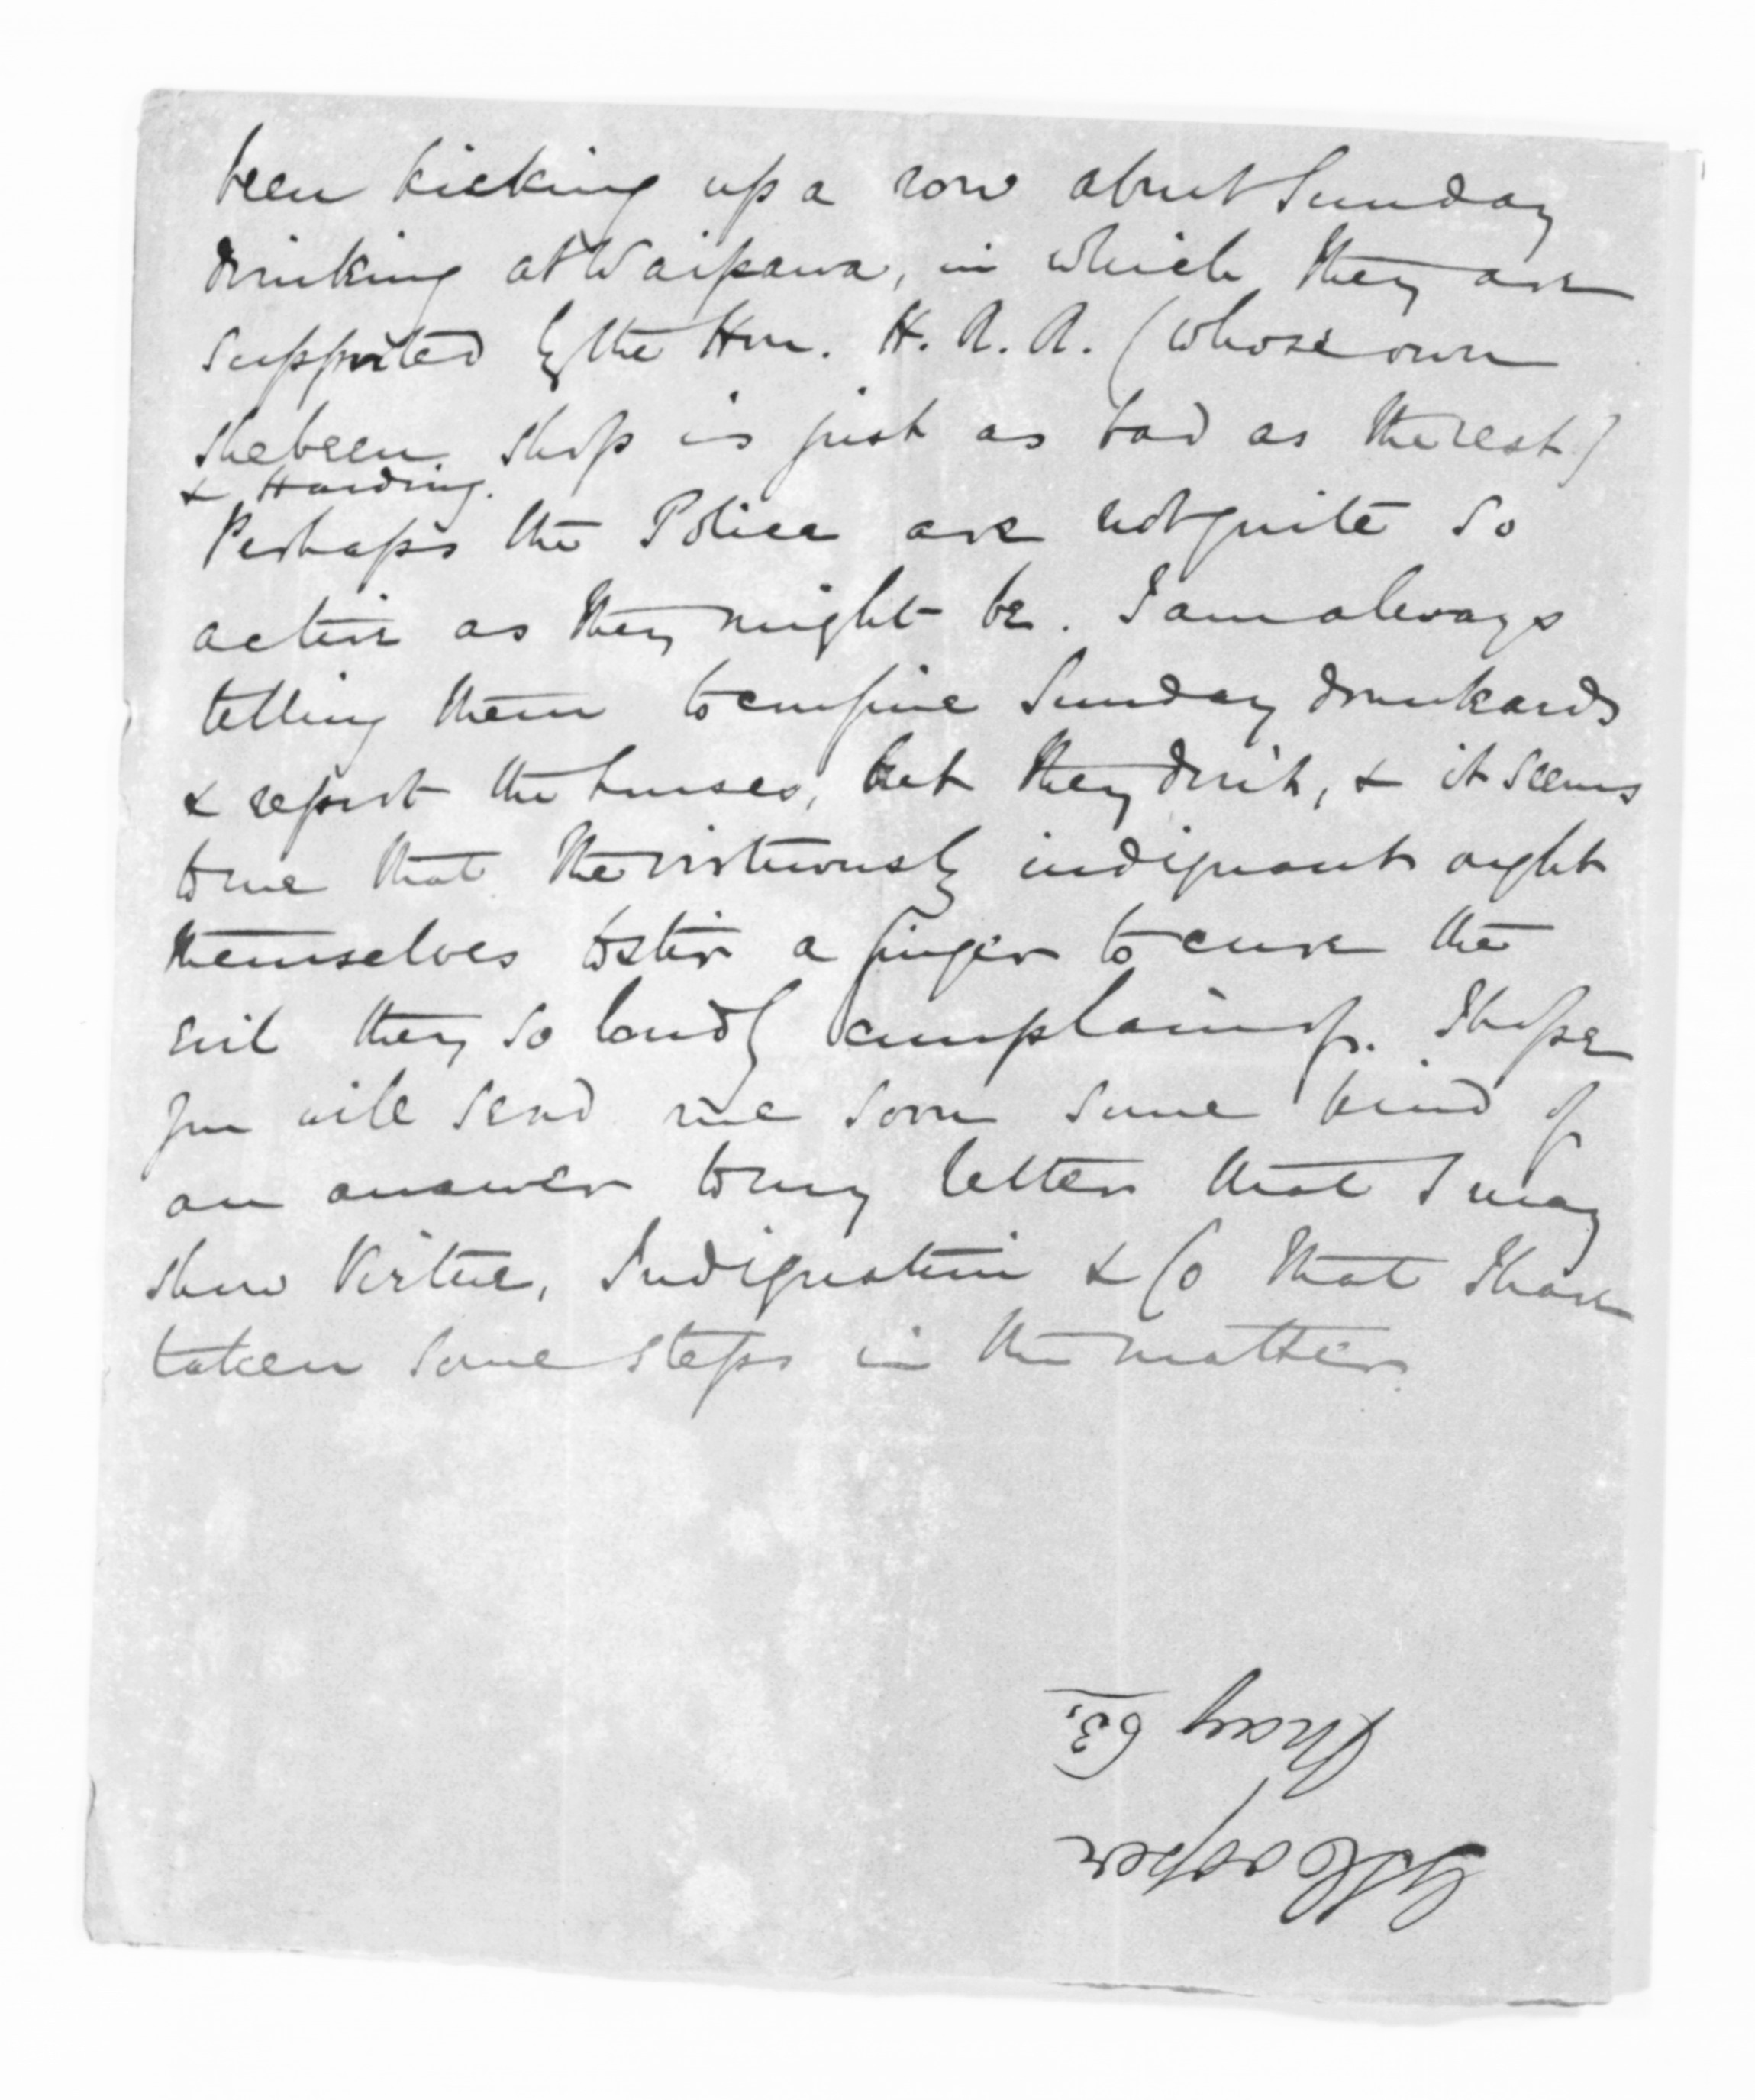 been kicking up a row about Sunday
drinking at Waipawa, in which they are
supported by the Hon. H. R. R. (whose own
shebeen shop is just as bad as the rest)
& Harding.
Perhaps the Police are not quite so
active as they might be. I am always
telling them to confine Sunday drunkards
& report the houses, but they don't, & it seems
to me that the virtuously indignant ought
themselves to stir a finger to cure the
evil they so loudly complain of. I hope
you will send me soon some kind of
an answer to my letter that I may
show Virtue, Indignation & Co that I have
taken some steps in the matter.
GSCooper
May 63.